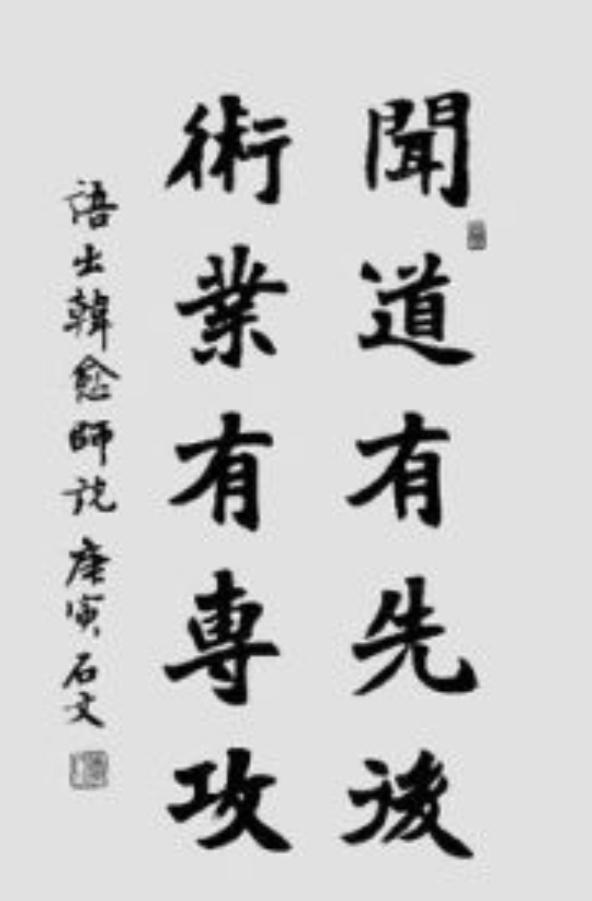 聞道有先後
術業有専攻
語出韓愈師説 庚寅 石文